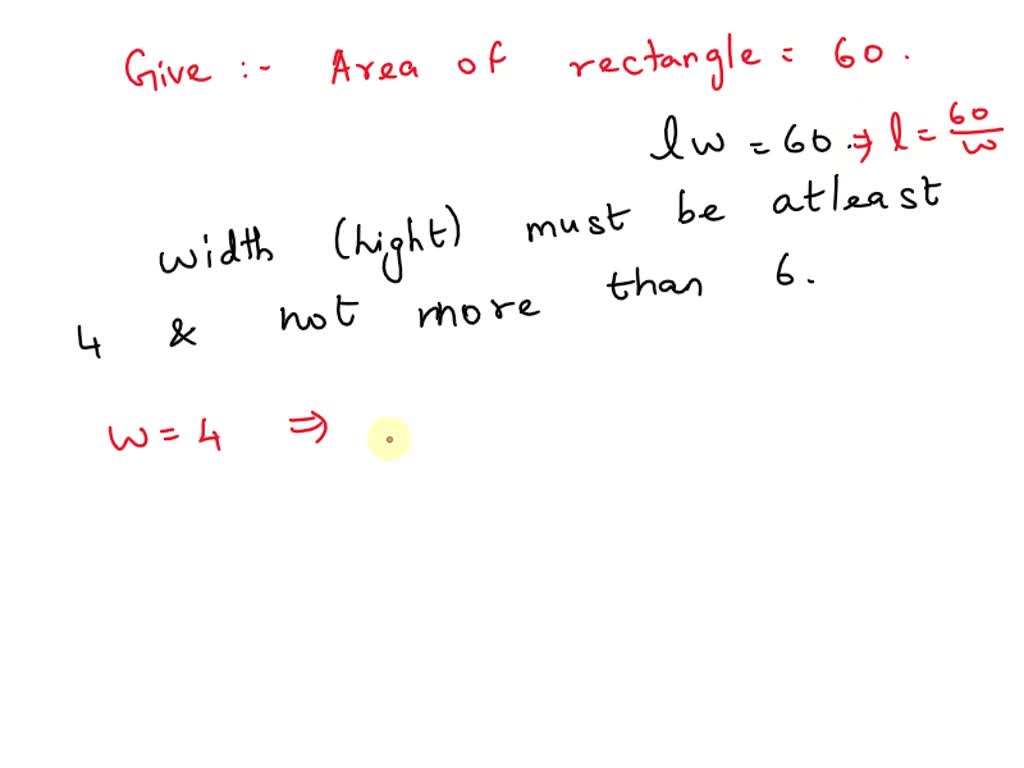 Give :- Area of rectangle = 60.
lw = 60 ⇒ l = 60/w
width (hight) must be atleast
4 & not more than 6.
w = 4 ⇒